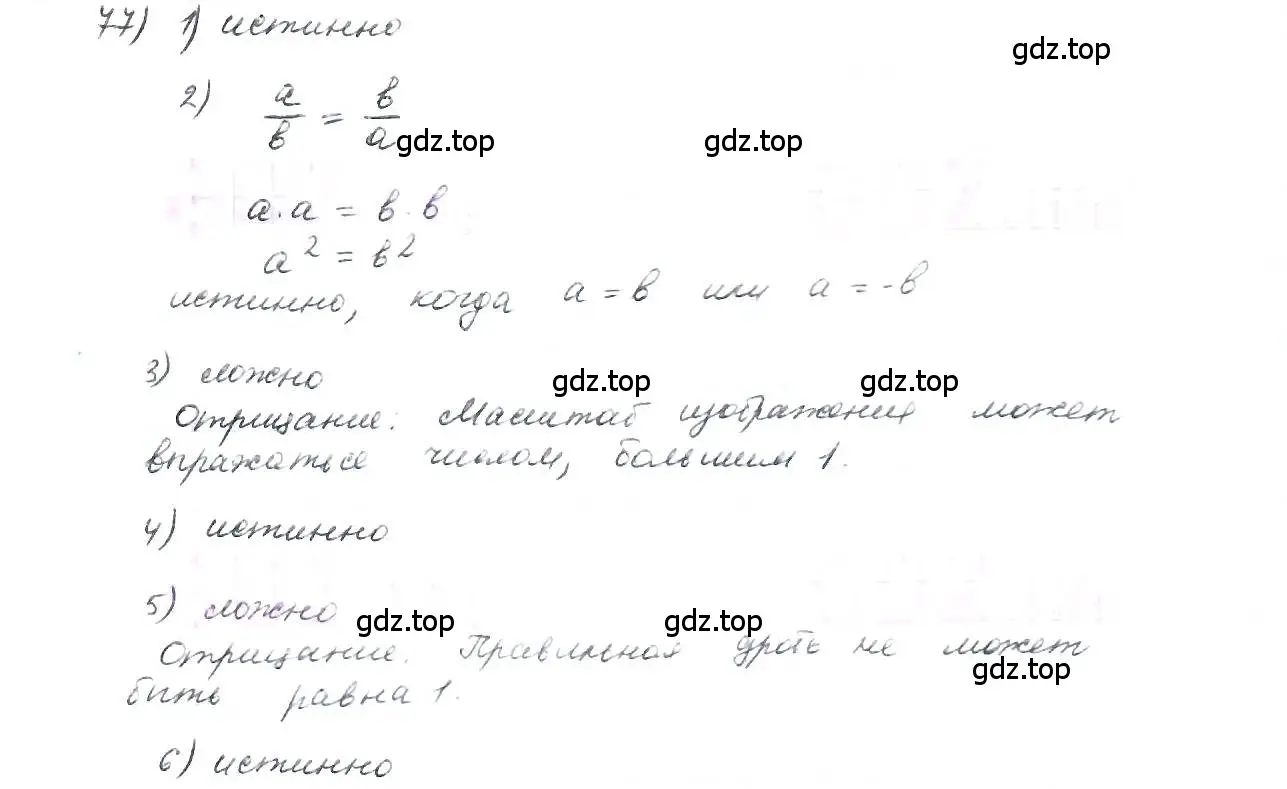 77) 1) истинно
gdz.top
2) a/в = в/a
gdz.top gdz.top
a·a = в·в
a² = в²
истинно, когда a = в или a = -в
3) ложно
gdz.top gdz.top
Отрицание: Масштаб изображения может
выражаться числом, большим 1.
4) истинно
5) ложно
gdz.top gdz.top
Отрицание. Правильная дробь не может
gdz.top
быть равна 1.
6) истинно